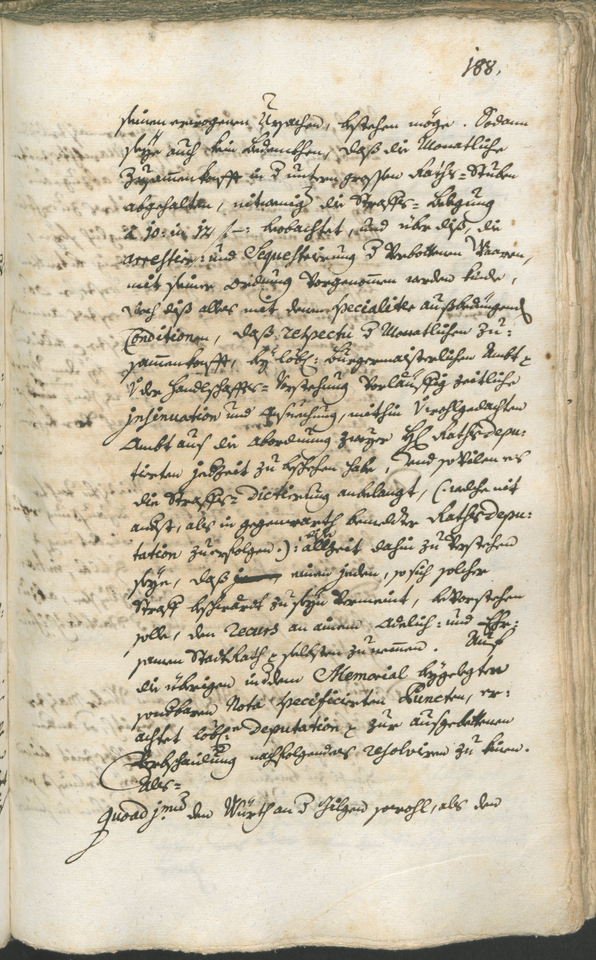 188.
seinen erwogenen Ursachen, bestehen möge. Sodann
seye auch kein bedenckhen, daß die Monatliche
Zusammenkonfft in d untern grossen Raths-Stuben
abgehalten, nit wenig die Straffs-Belegung
à 10: in 12 f —: beobachtet, und über diß, die
Arrestier: und Sequestrirung d verbottenen Waaren,
mit seiner ordnung vorgenommen werden könde,
doch diß alles mit denen specialiter außbedungenen
Conditionen, daß respectu d Monatlichen Zu:
sammenkonfft, bey löbl: Burgermaisterlichen Ambt
von der Handlschaffts-Vorstehung vorläuffig zeitliche
insinuation und Ansuechung, mithin wohlgedachten
Ambt auf die Abordnung zweyer H Raths depu:
tirten jederzeit zu bestehen habe, und so vilen es
die Straffs-Dictirung anbelangt, (: welche nit
anderst, als in gegenwarth bemelter Raths depu:
tation zu erfolgen :) allzeit dahin zu verstehen
seye, daß einem jeden, so sich solcher
Straff beschwärdt zu seyn vermeint, bevorstehen
solle, den recurs an einem Adelich: und Ehr:
samen Stadt Rath selbsten zu nemmen. Auf
die übrigen in dem Memorial beygelegter
sondbaren Nota specificirten Puncten, er:
achtet löbl: deputation zur ausgebettenen
Verbschaidung nachfolgendes resolviren zu können.
Als-
Quoad 1.mum den Würth an d Gilgen sowohl, als den